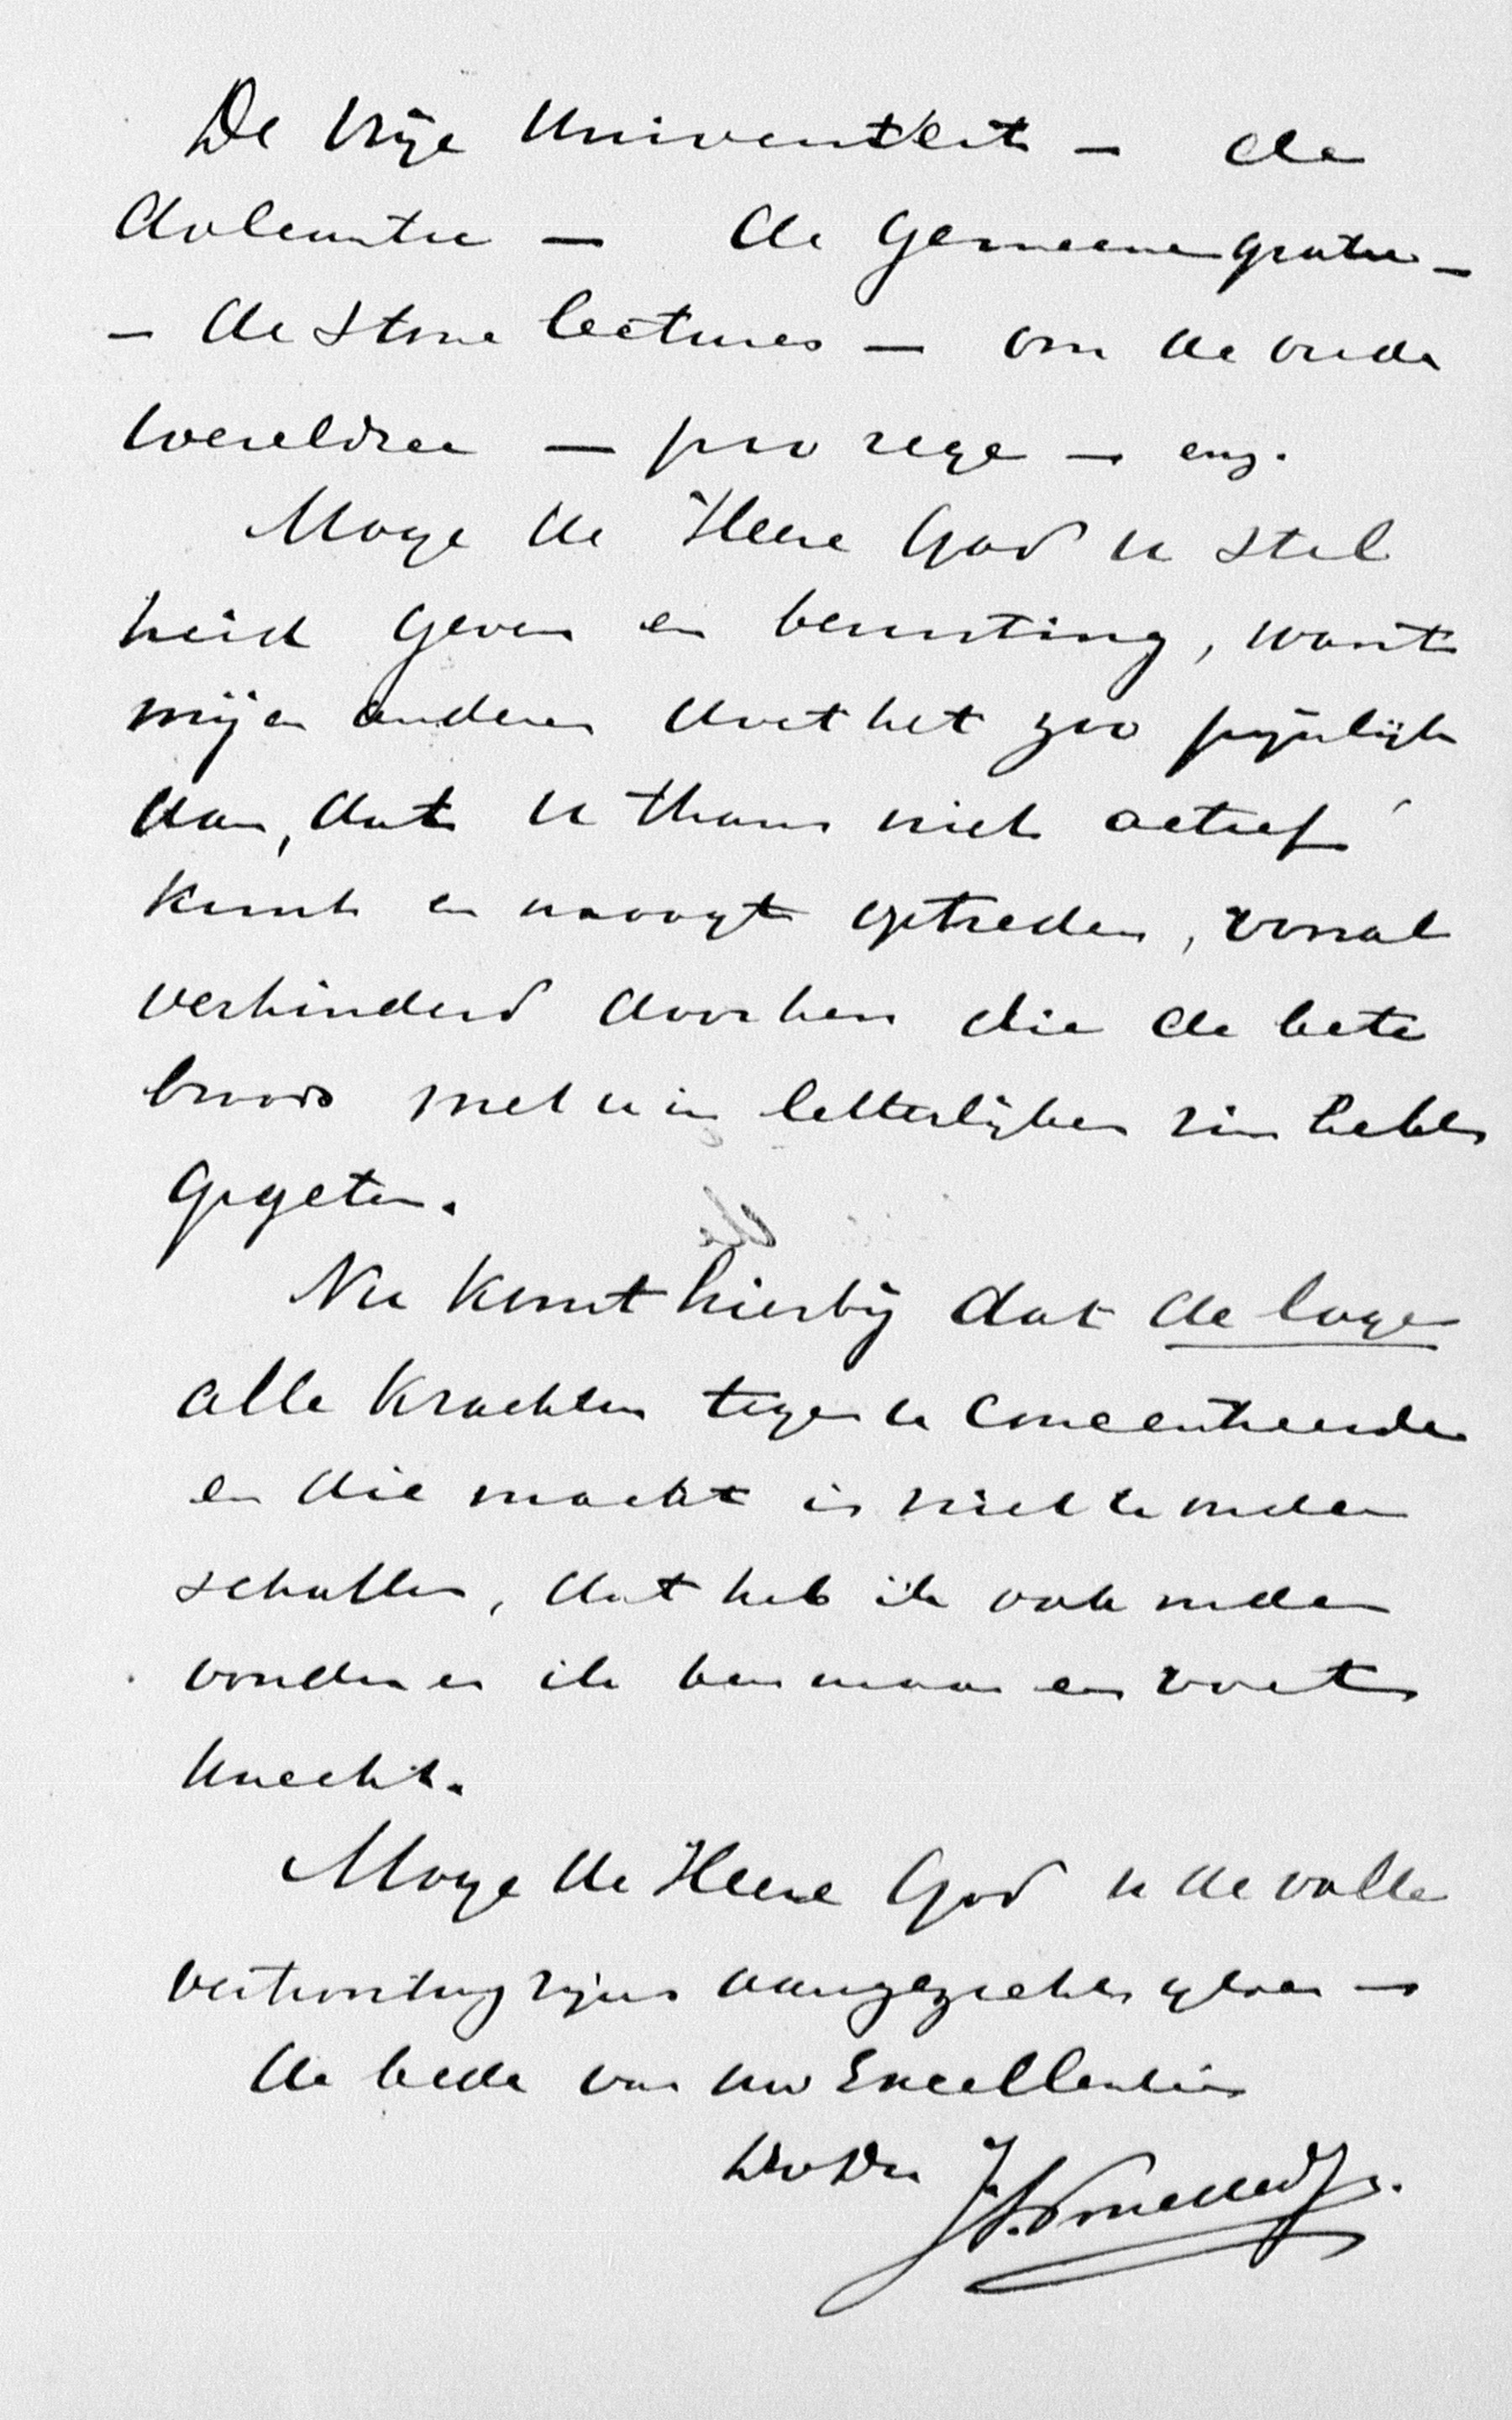 De Vrije Universiteit — de
doleantie — de gemeene gratie —
— de Stone lectures — om de oude
wereldzee — pro rege — enz.
Moge de Heere God u stel
heid geven en berusting, want
mij en anderen doet het zoo pijnlijk
aan, dat u thans niet actief
kunt en moogt optreden, vooral
verhinderd door hen die de bete
broods met u in letterlijken zin hebben
gegeten.
Nu komt hierbij dat de loge
alle krachten tegen u concentreerde
en die macht is niet te onder
schatten, dat heb ik ook onder
vonden en ik ben maar een voet
knecht.
Moge de Heere God u de volle
vertroosting zijns aangezichts geven —
de bede van uw Excellentie's
dw Dn